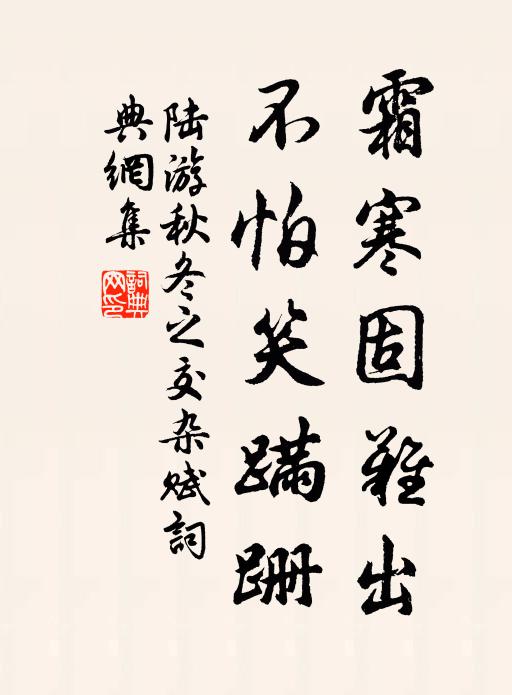 霜寒固難出
不怕笑蹣跚
陆游秋冬之交杂赋詞
典網集
詞典
网印